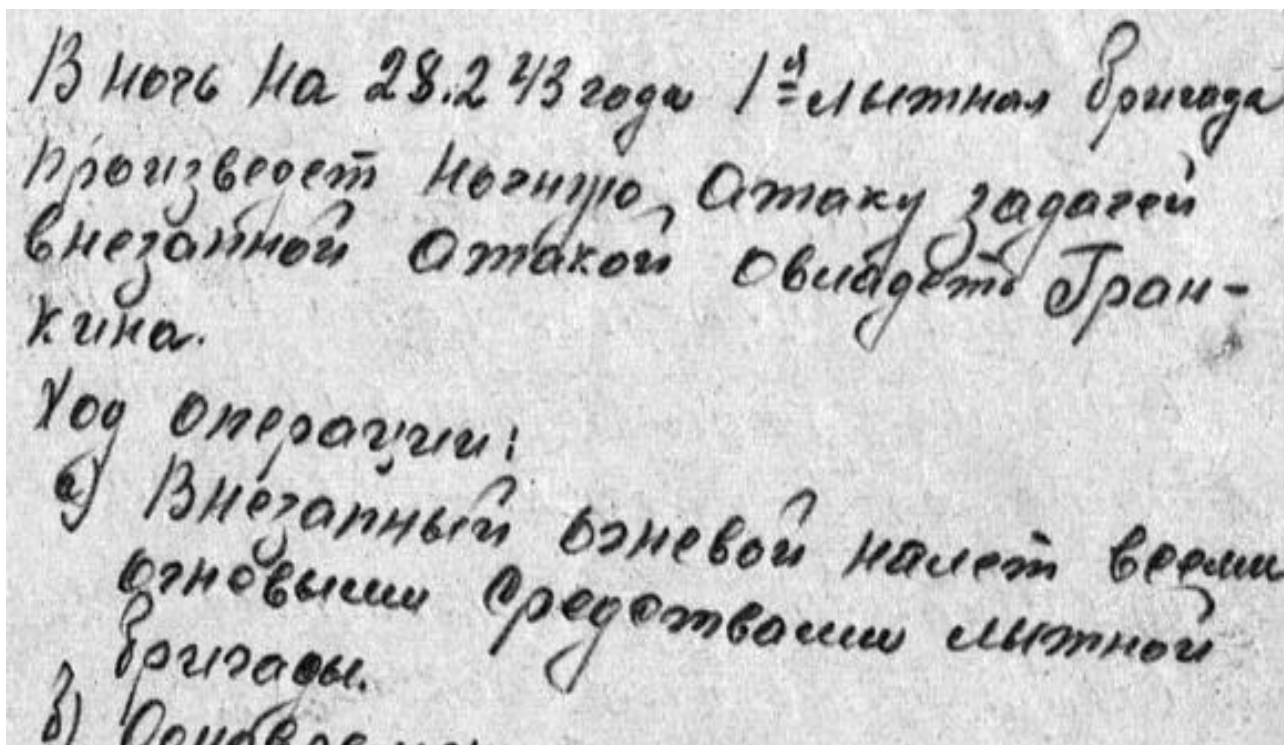 В ночь на 28.2 43 года 1я лыжная бригада
произведет ночную атаку задачей
внезапной атакой овладеть Гран-
кина.
Ход операции:
а) Внезапный огневой налет всеми
огновыми средствами лыжной
бригады.
б)